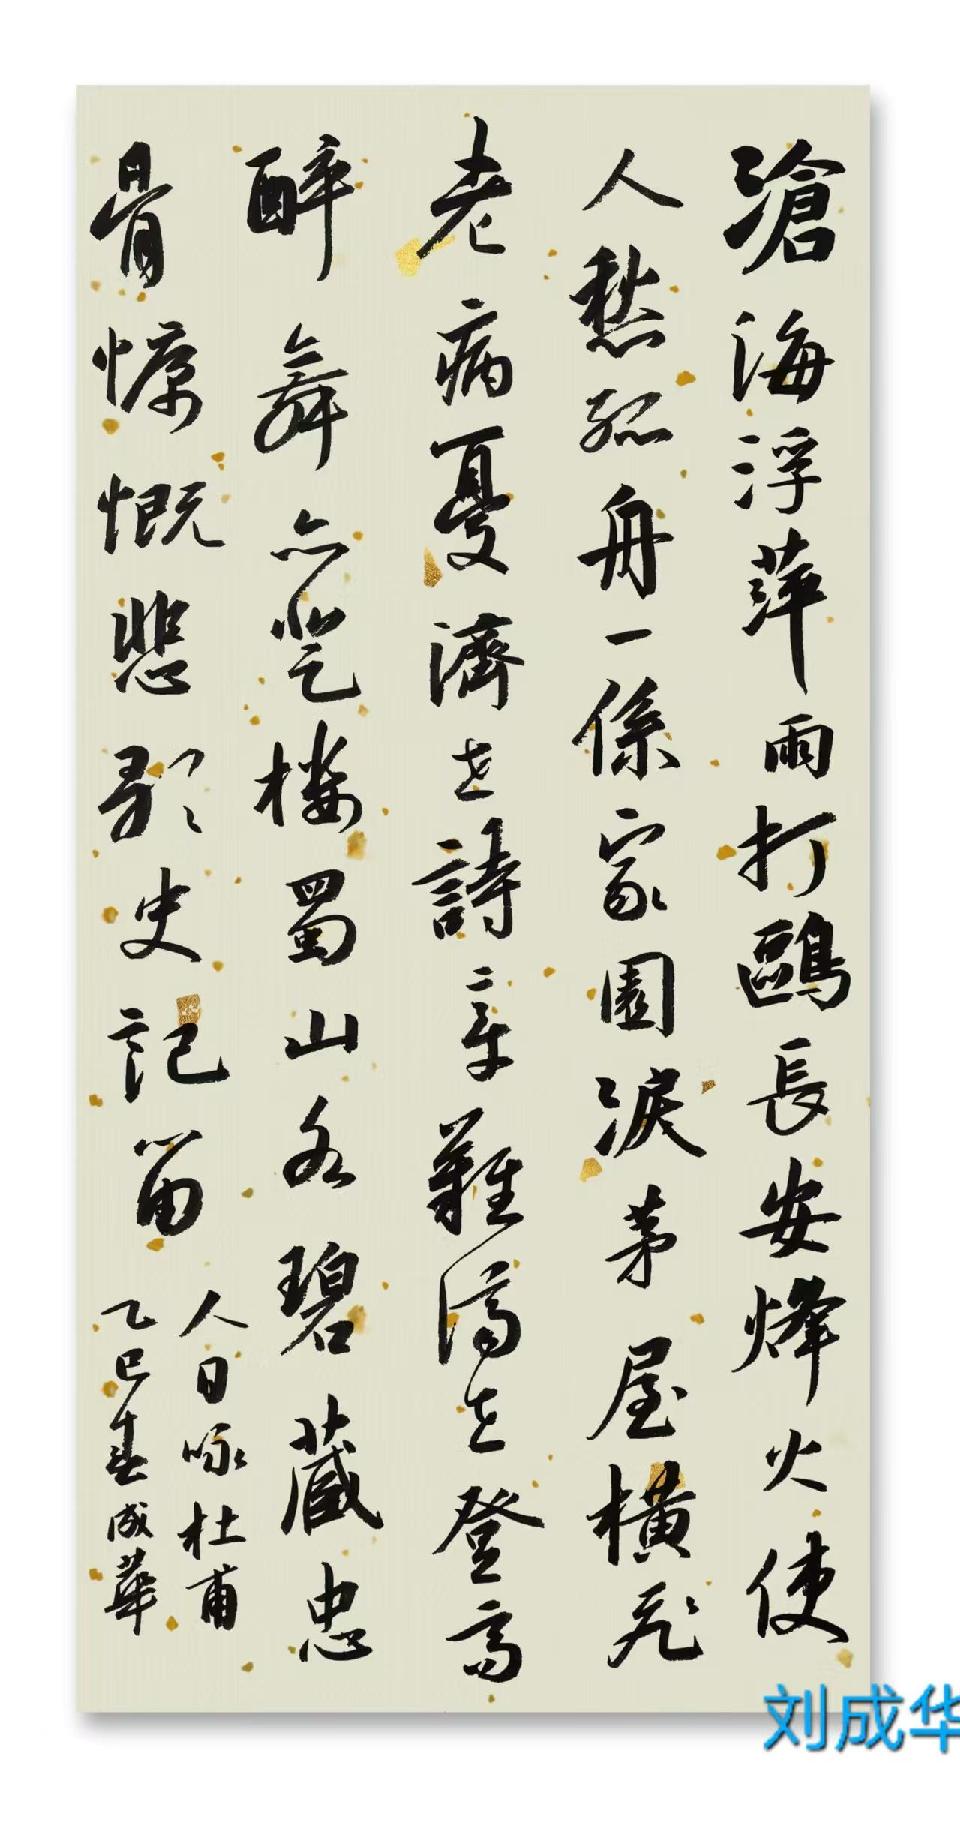 滄海浮萍雨打鷗長安烽火使
人愁孤舟一係家園淚茅屋橫飛
老病憂濟世詩章難濟世登高
醉舞亦登楼蜀山水碧藏忠
骨慷慨悲歌史記留
人日咏杜甫
乙巳春成華
刘成华